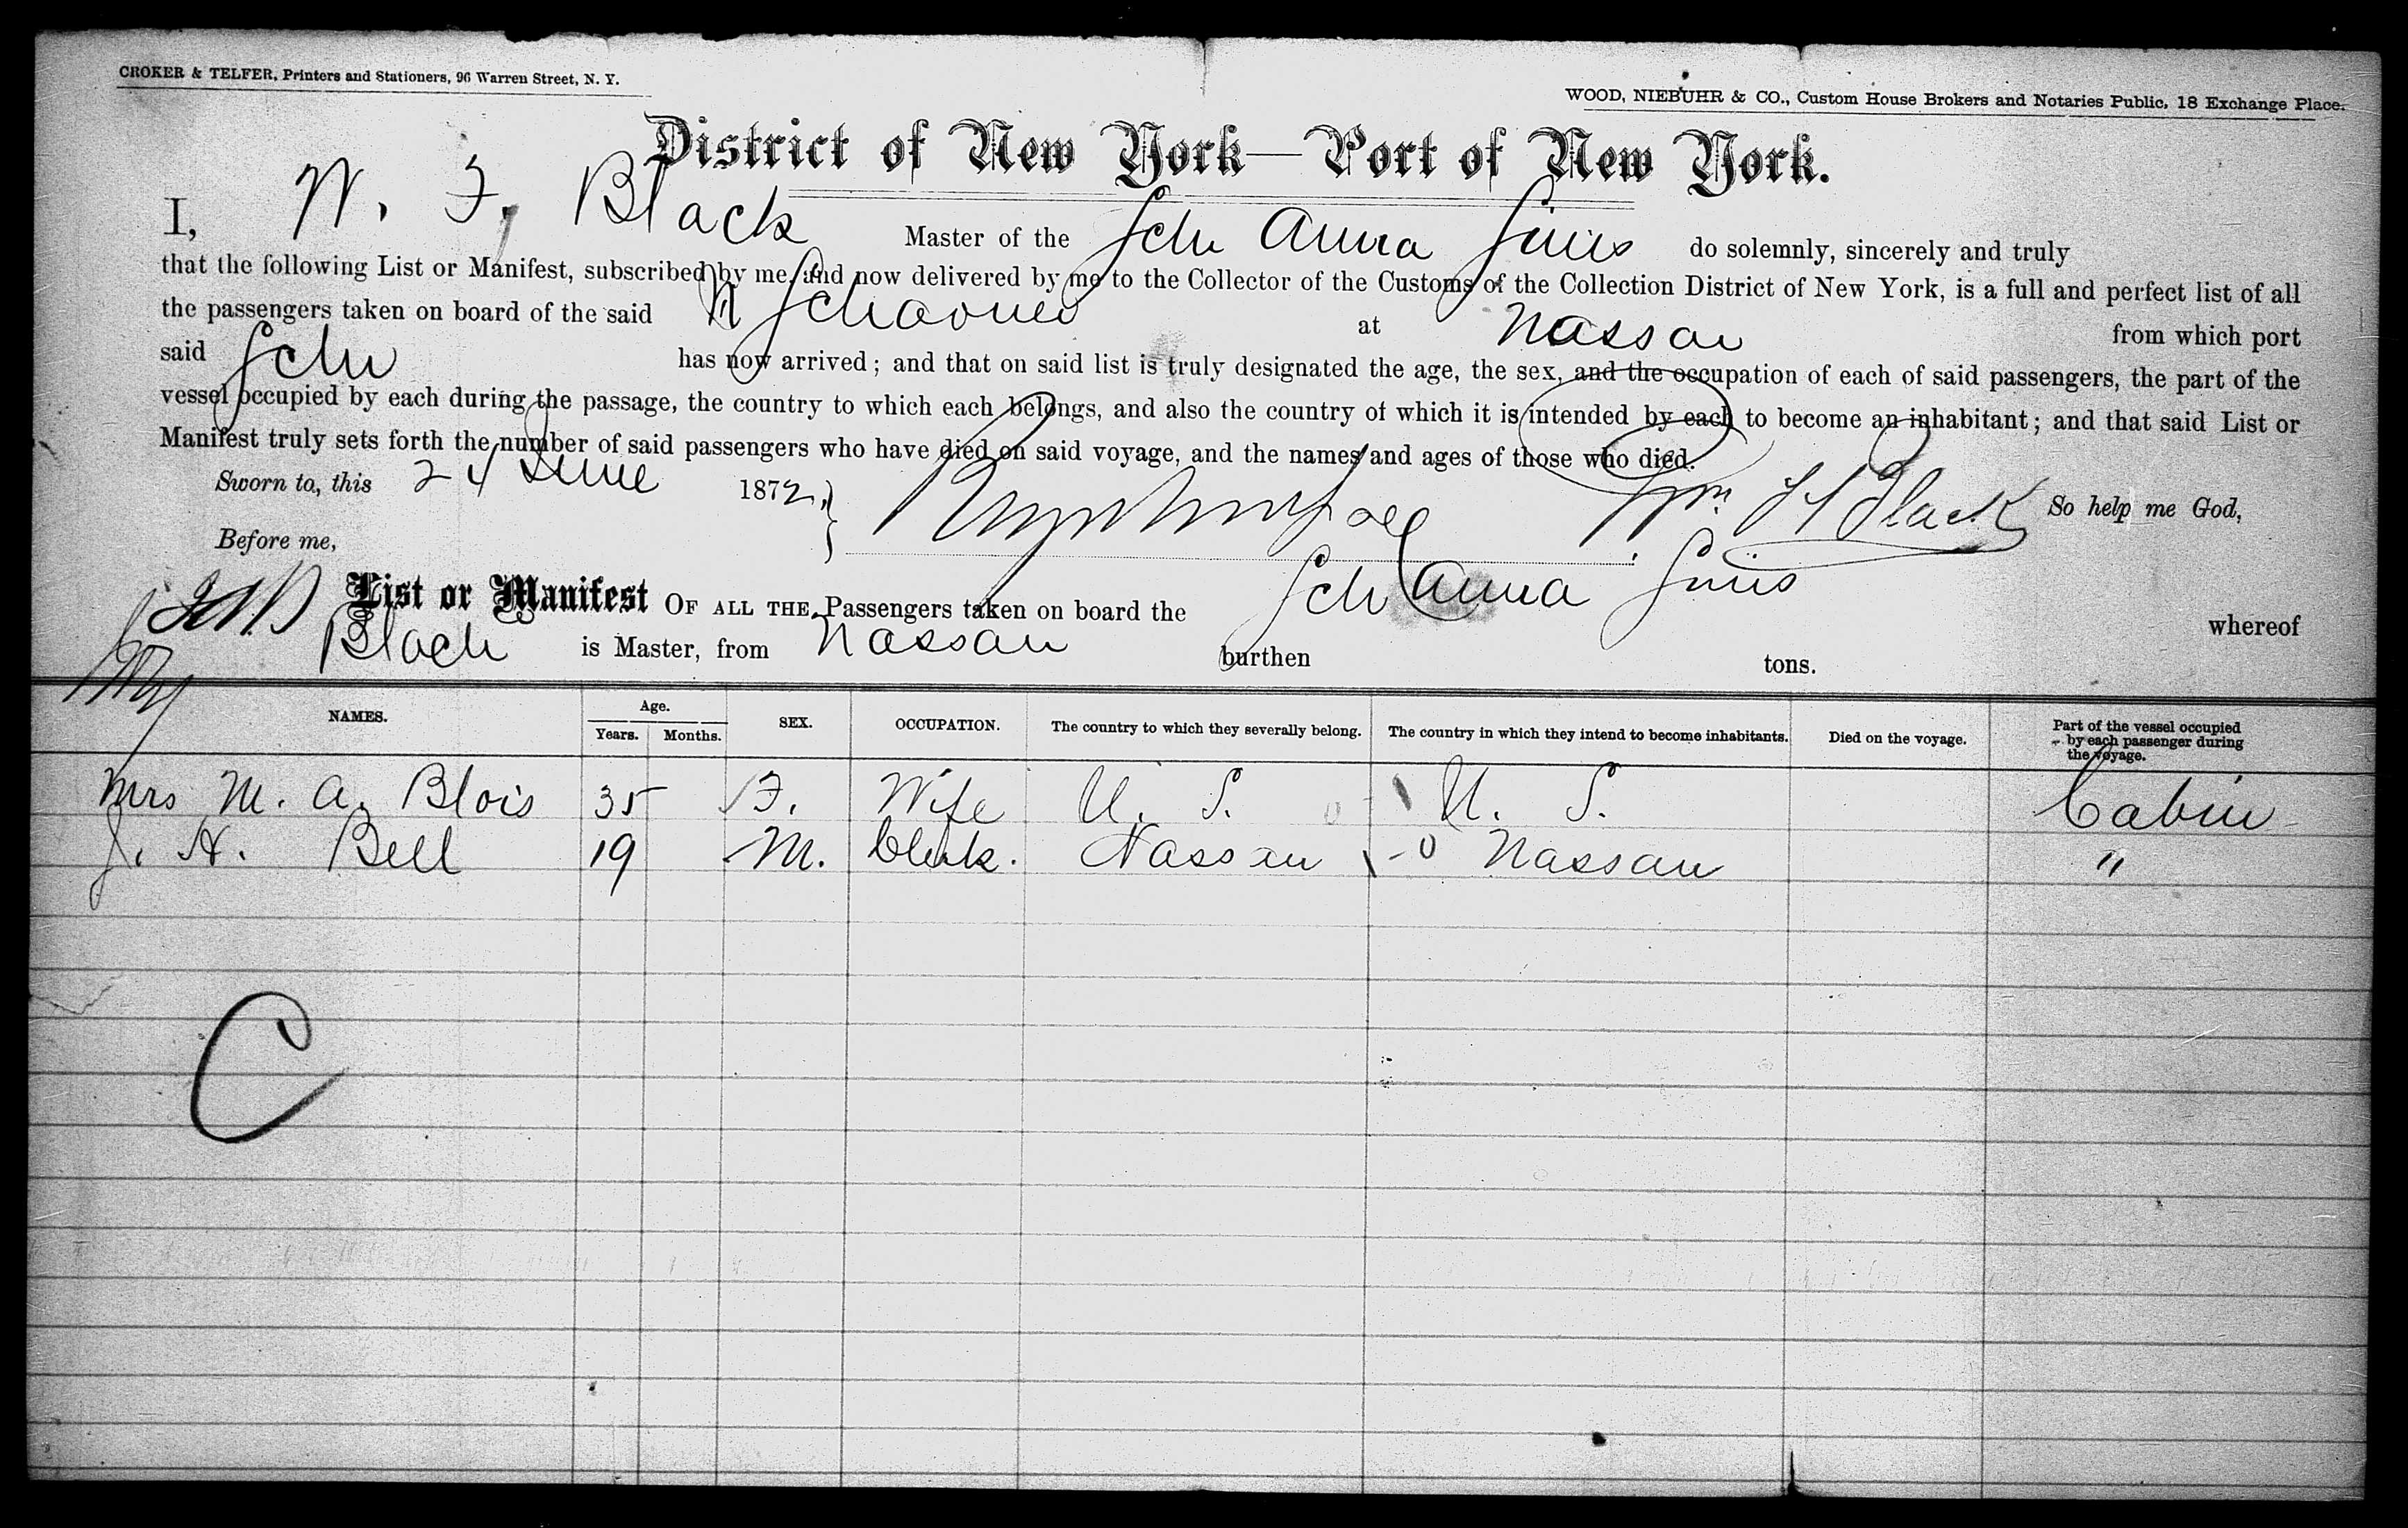 CROKER & TELFER, Printers and Stationers, 96 Warren Street, N. Y.
WOOD, NIEBUHR & CO., Custom House Brokers and Notaries Public, 18 Exchange Place.
District of New York—Port of New York.
I, W. F. Black Master of the Schr Anna Sims do solemnly, sincerely and truly
that the following List or Manifest, subscribed by me, and now delivered by me to the Collector of the Customs of the Collection District of New York, is a full and perfect list of all
the passengers taken on board of the said Schooner at Nassau from which port
said Schr has now arrived; and that on said list is truly designated the age, the sex, and the occupation of each of said passengers, the part of the
vessel occupied by each during the passage, the country to which each belongs, and also the country of which it is intended by each to become an inhabitant; and that said List or
Manifest truly sets forth the number of said passengers who have died on said voyage, and the names and ages of those who died.
Sworn to, this 24 June 1872, Wm Black So help me God,
Before me,
List or Manifest OF ALL THE Passengers taken on board the Schr Anna Sims whereof
Black is Master, from Nassau burthen tons.
NAMES. Age. Years. Months. SEX. OCCUPATION. The country to which they severally belong. The country in which they intend to become inhabitants. Died on the voyage. Part of the vessel occupied by each passenger during the voyage.
Mrs M. A. Blois 35 F. Wife U. S. U. S. Cabin
J. H. Bell 19 M. Clerk. Nassau Nassau "
C